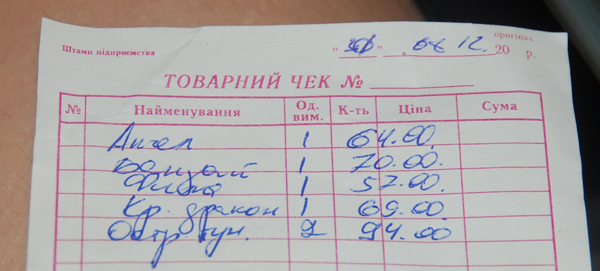 оригінал
Штамп підприємства " " 06 12. 20 р.
ТОВАРНИЙ ЧЕК №
№ Найменування Од. вим. К-ть Ціна Сума
Ангел 1 64.00.
Банзай 1 70.00.
1 57.00.
Кр. дракон 1 69.00.
Остр. 2 94.00